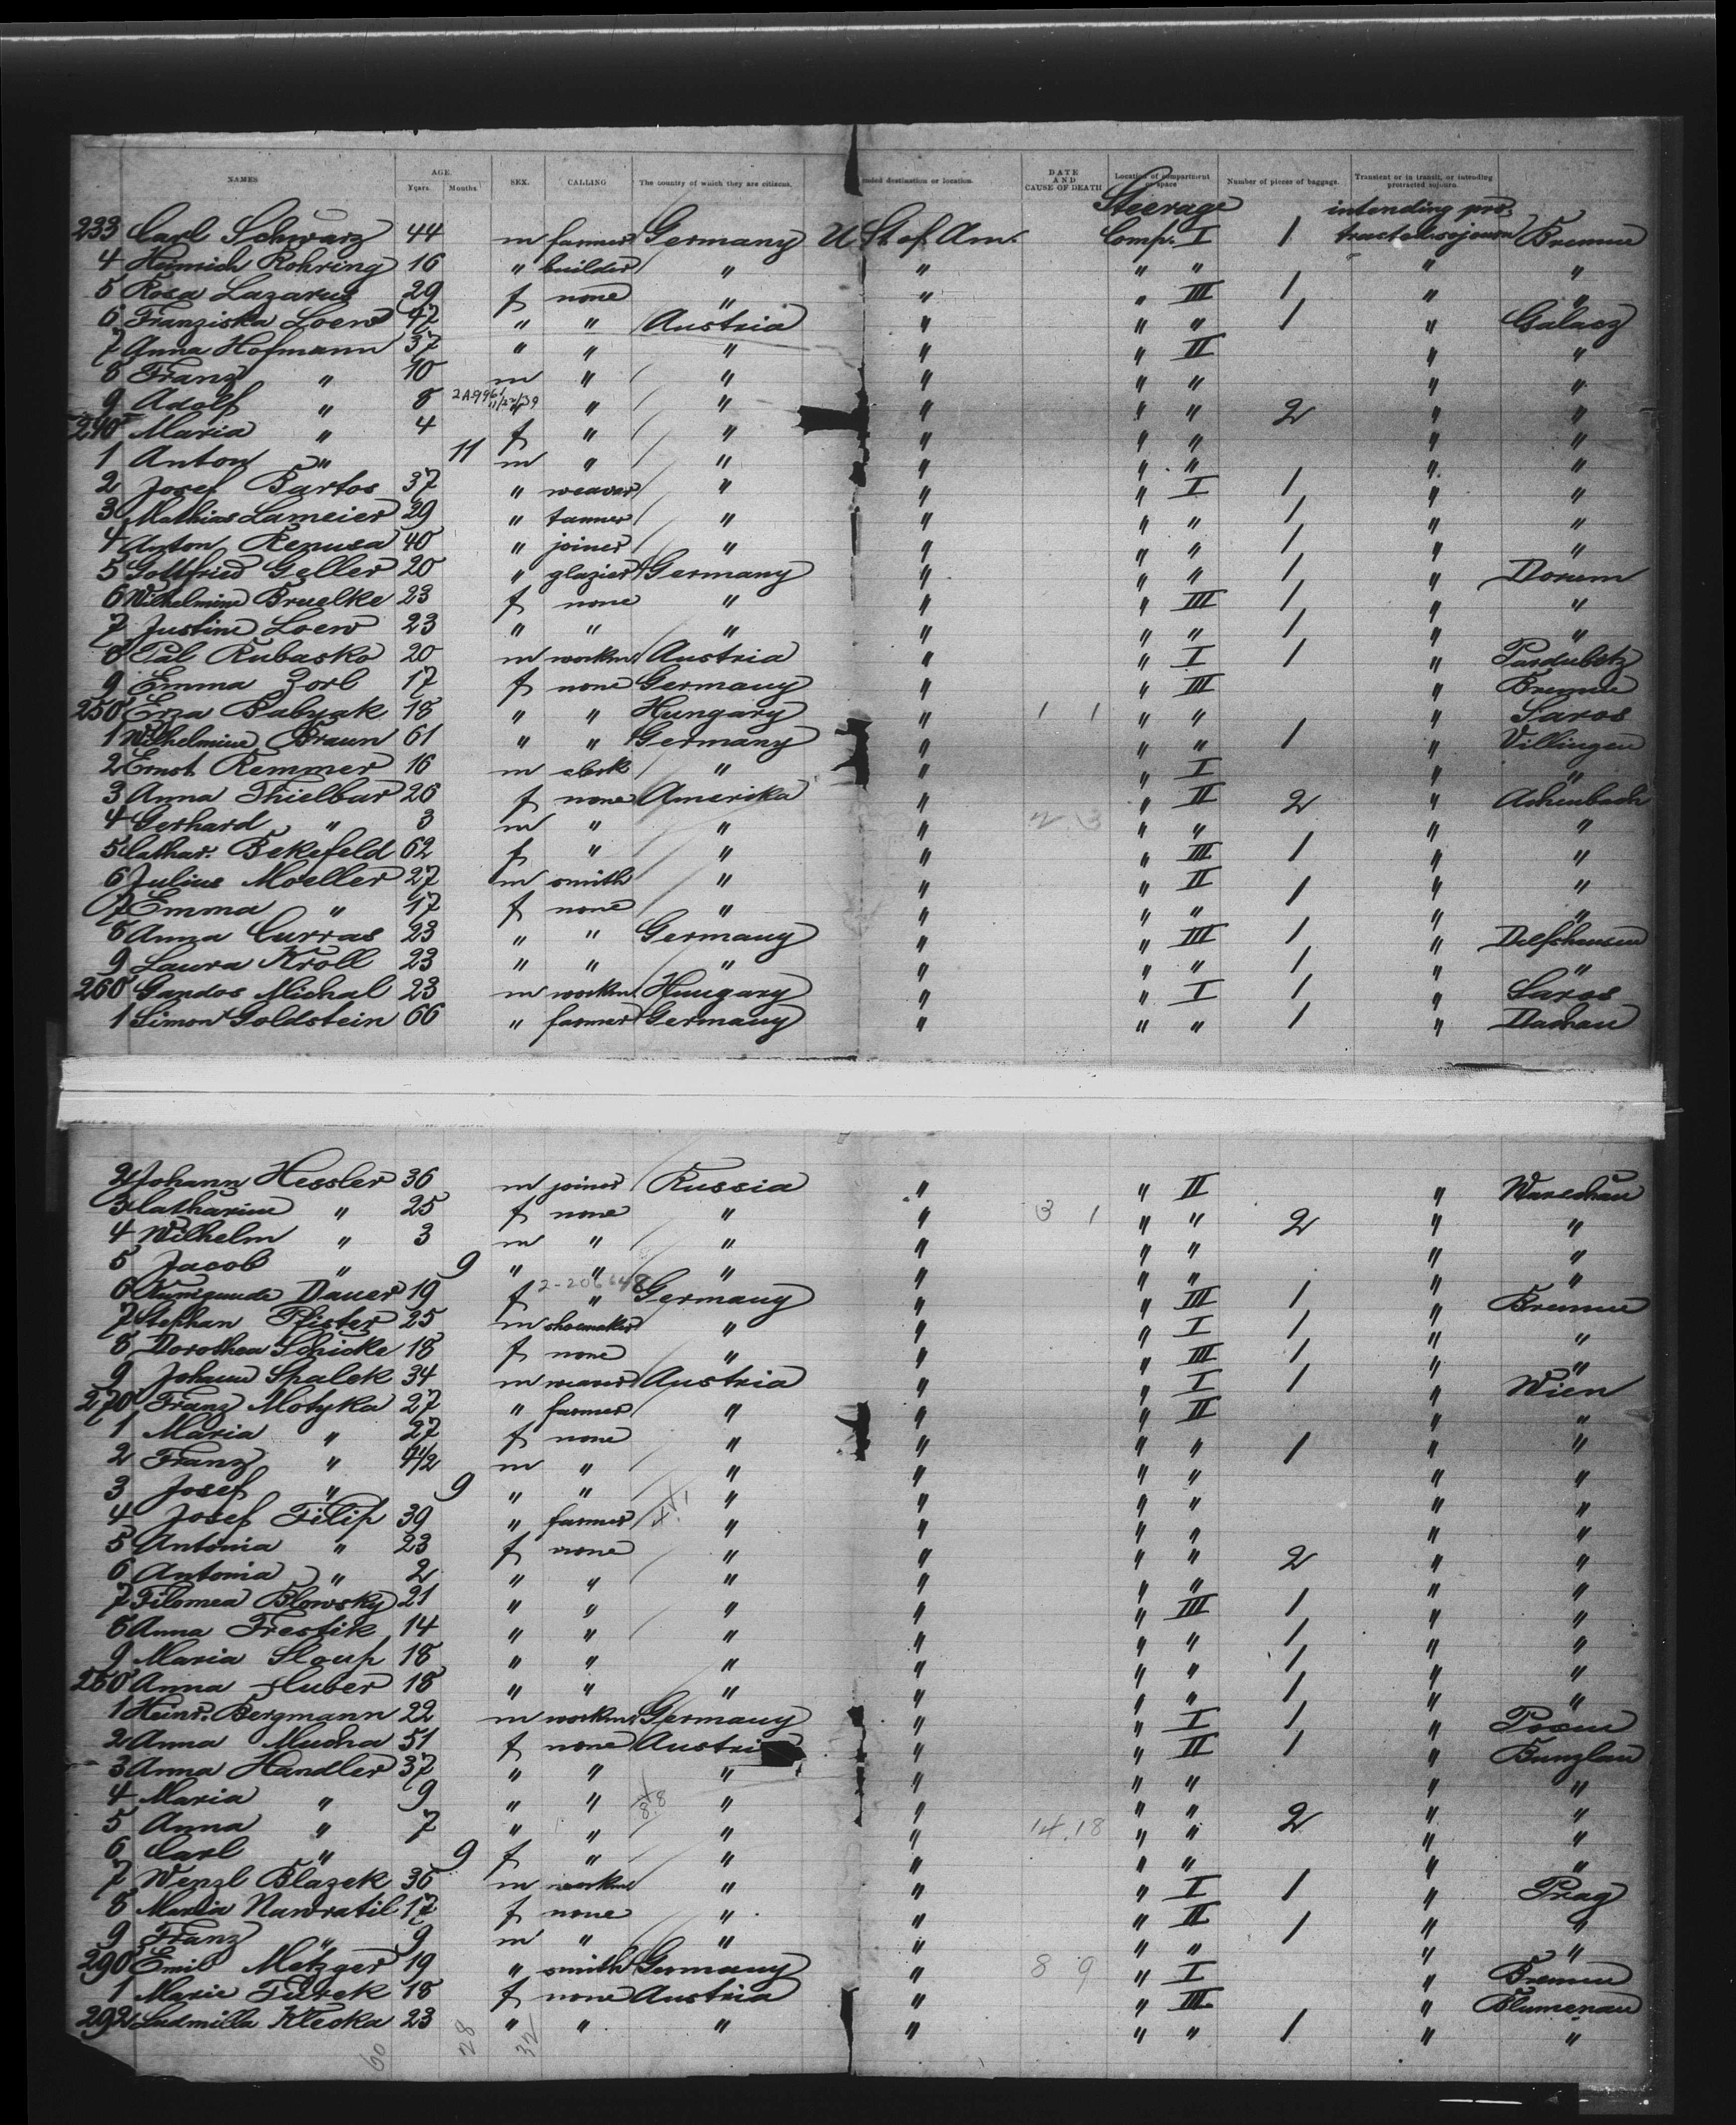 NAMES AGE. Years. Months. SEX. CALLING The country of which they are citizens. ended destination or location. DATE AND CAUSE OF DEATH Location of compartment or space Number of pieces of baggage. Transient or in transit, or intending protracted sojourn.
Steerage intending pro-
233 Carl Schwarz 44 m farmer Germany U St. of Am. Comp. I 1 tracted sojourn Bremen
4 Heinrich Rohring 16 " builder " " " " " "
5 Rosa Lazarus 29 f none " " " III 1 " "
6 Franziska Loew 47 " " Austria " " " 1 " Galacz
7 Anna Hofmann 37 " " " " " II " "
8 Franz " 10 m " " " " " " "
9 Adolf " 8 " " " " " " 2 " "
240 Maria " 4 f " " " " " " "
1 Anton " 11 m " " " " " " "
2 Josef Bartos 37 " weaver " " " I 1 " "
3 Mathias Lameier 29 " tanner " " " " 1 " "
4 Anton Renusa 40 " joiner " " " " 1 " "
5 Gottfried Geller 20 " glazier Germany " " " 1 " Dorum
6 Wilhelmine Bruelke 23 f none " " " III 1 " "
7 Justine Loew 23 " " " " " " 1 " "
8 Pal Rubasko 20 m workm. Austria " " I 1 " Pardubitz
9 Emma Zorl 17 f none Germany " " III " Bremen
250 Erza Babyak 18 " " Hungary " 1 1 " " " Saros
1 Wilhelmine Braun 61 " " Germany " " " 1 " Villingen
2 Ernst Remmer 16 m clerk " " " I " "
3 Anna Thielbar 26 f none Amerika " " II 2 " Achenbach
4 Gerhard " 3 m " " " 2 3 " " " "
5 Cathar. Bekefeld 62 f " " " " III 1 " "
6 Julius Moeller 27 m smith " " " II 1 " "
7 Emma " 17 f none " " " " " "
8 Anna Curras 23 " " Germany " " III 1 " Delfshausen
9 Laura Kroll 23 " " " " " " 1 " "
260 Gandos Michal 23 m workm. Hungary " " I 1 " Saros
1 Simon Goldstein 66 " farmer Germany " " " 1 "
2 Johann Hessler 36 m joiner Russia " " II " Warschau
3 Catharine " 25 f none " " 3 1 " " 2 " "
4 Wilhelm " 3 m " " " " " " "
5 Jacob " 9 " " " " " " " "
6 Kunigunde Dauer 19 f 2-206648 " Germany " " III 1 " Bremen
7 Stephan Pfister 25 m shoemaker " " " I 1 " "
8 Dorothea Schicke 18 f none " " " III 1 " "
9 Johann Spalek 34 m weaver Austria " " I 1 " Wien
270 Franz Motyka 27 " farmer " " " II " "
1 Maria " 27 f none " " " " 1 " "
2 Franz " 4 1/2 m " " " " " " "
3 Josef " 9 " " " " " " " "
4 Josef Filip 39 " farmer " " " " " "
5 Antonia " 23 f none " " " " 2 " "
6 Antonia " 2 " " " " " " " "
7 Filomea Blowsky 21 " " " " " III 1 " "
8 Anna Frestik 14 " " " " " " 1 " "
9 Maria Sloup 18 " " " " " " 1 " "
280 Anna Huber 18 " " " " " " 1 " "
1 Heinr. Bergmann 22 m workm. Germany " " I 1 " Posen
2 Anna Mucha 51 f none Austri " " II 1 " Bunzlau
3 Anna Handler 37 " " " " " " " "
4 Maria " 9 " " " " " " 2 " "
5 Anna " 7 " " " " 14.18 " " " "
6 Carl " 9 f " " " " " " "
7 Wenzl Blazek 36 m workm " " " I 1 " Prag
8 Maria Nawratil 17 f none " " " II 1 " "
9 Franz " 9 m " " " " " " "
290 Emil Metzger 19 " smith Germany " 8 9 " I " Bremen
1 Marie Turek 18 f none Austria " " III " Blumenau
292 Ludmilla Klecka 23 " " " " " " 1 " "
60 28 32